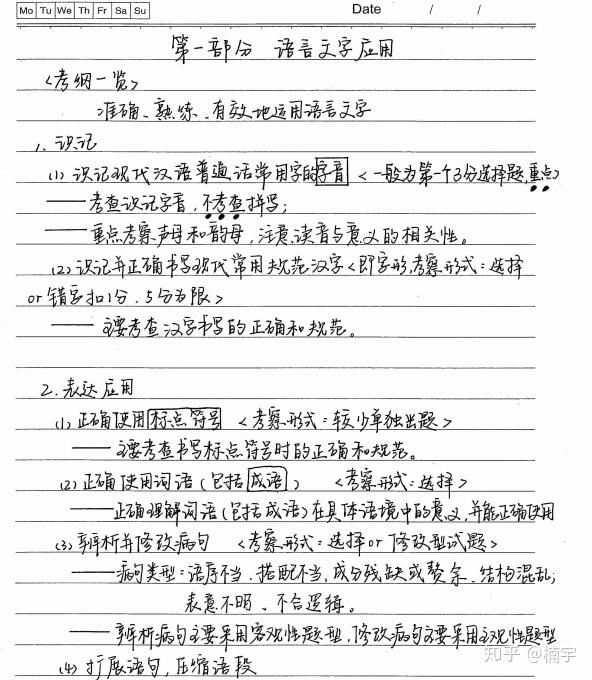 Mo Tu We Th Fr Sa Su Date / /
第一部分 语言文字应用
<考纲一览>
准确、熟练、有效地运用语言文字
1、识记
(1) 识记现代汉语普通话常用字的字音 <一般为第一个3分选择题,重点>
——考查识记字音,不考查拼写;
——重点考察声母和韵母,注意读音与意义的相关性。
(2) 识记并正确书写现代常用规范汉字<即字形,考察形式:选择
or 错字扣1分,5分为限>
——主要考查汉字书写的正确和规范。
2.表达应用
(1) 正确使用标点符号 <考察形式:较少单独出题>
——主要考查书写标点符号时的正确和规范。
(2) 正确使用词语(包括成语) <考察形式:选择>
——正确理解词语(包括成语)在具体语境中的意义,并能正确使用
(3) 辨析并修改病句 <考察形式:选择or修改型试题>
——病句类型:语序不当,搭配不当,成分残缺或赘余、结构混乱;
表意不明、不合逻辑。
——辨析病句主要采用客观性题型,修改病句主要采用主观性题型
(4) 扩展语句,压缩语段
知乎 @楠宇